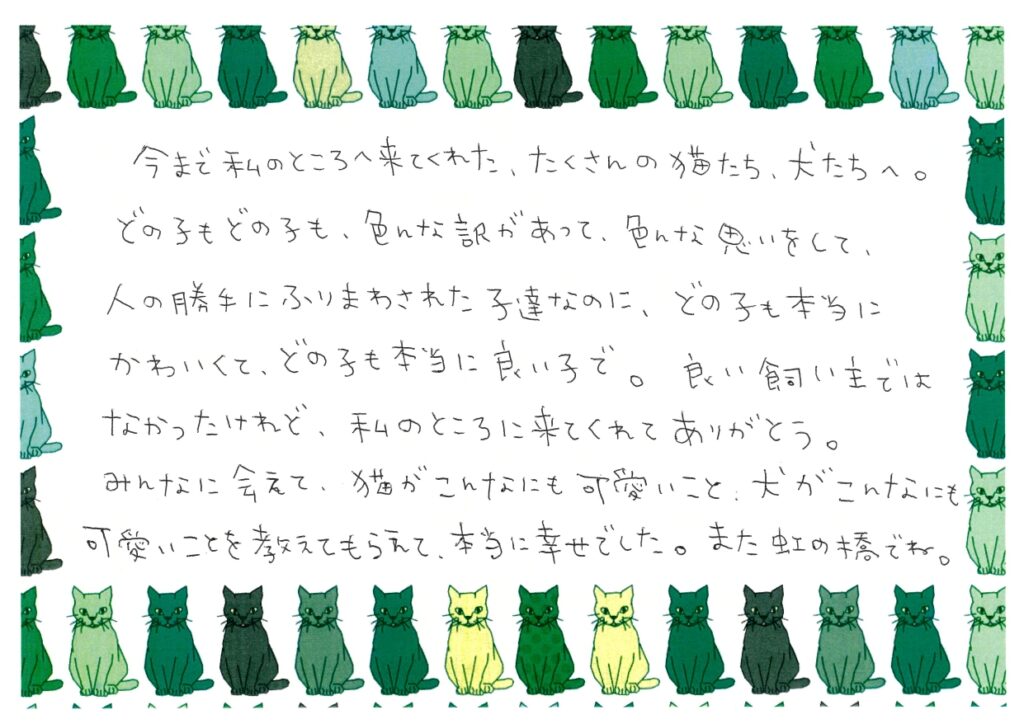 今まで私のところへ来てくれた、たくさんの猫たち、犬たちへ。
どの子もどの子も、色んな訳があって、色んな思いをして、
人の勝手にふりまわされた子達なのに、どの子も本当に
かわいくて、どの子も本当に良い子で。良い飼い主では
なかったけれど、私のところに来てくれてありがとう。
みんなに会えて、猫がこんなにも可愛いこと、犬がこんなにも
可愛いことを教えてもらえて、本当に幸せでした。また虹の橋でね。